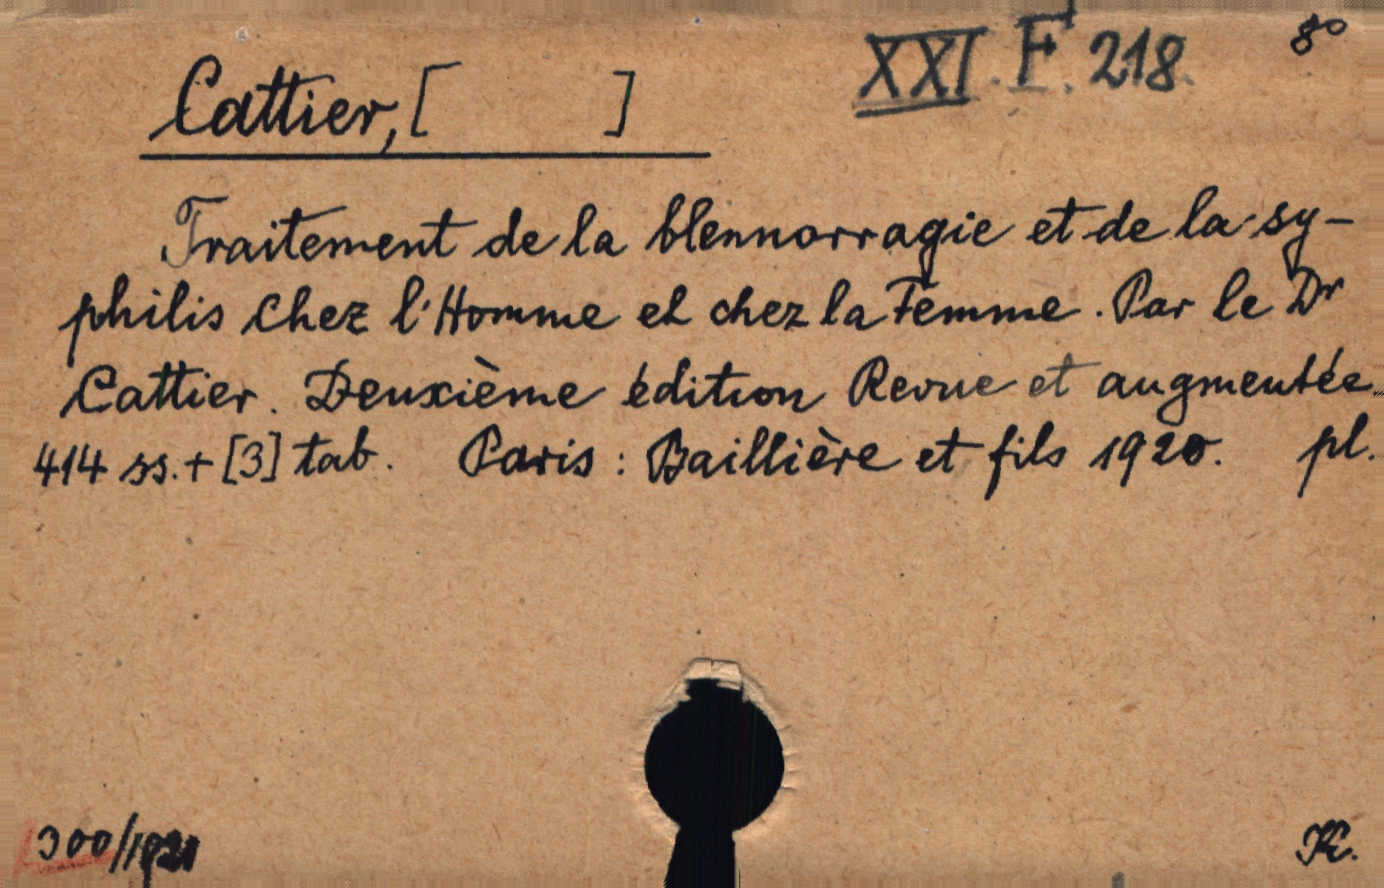 XXI. F. 218. 8°
Cattier, [ ]
Traitement de la blennorragie et de la sy-
philis chez l'Homme et chez la Femme. Par le Dr
Cattier. Deuxième édition Revue et augmentée.
414 ss. + [3] tab. Paris : Baillière et fils 1920. pl.
300/1921